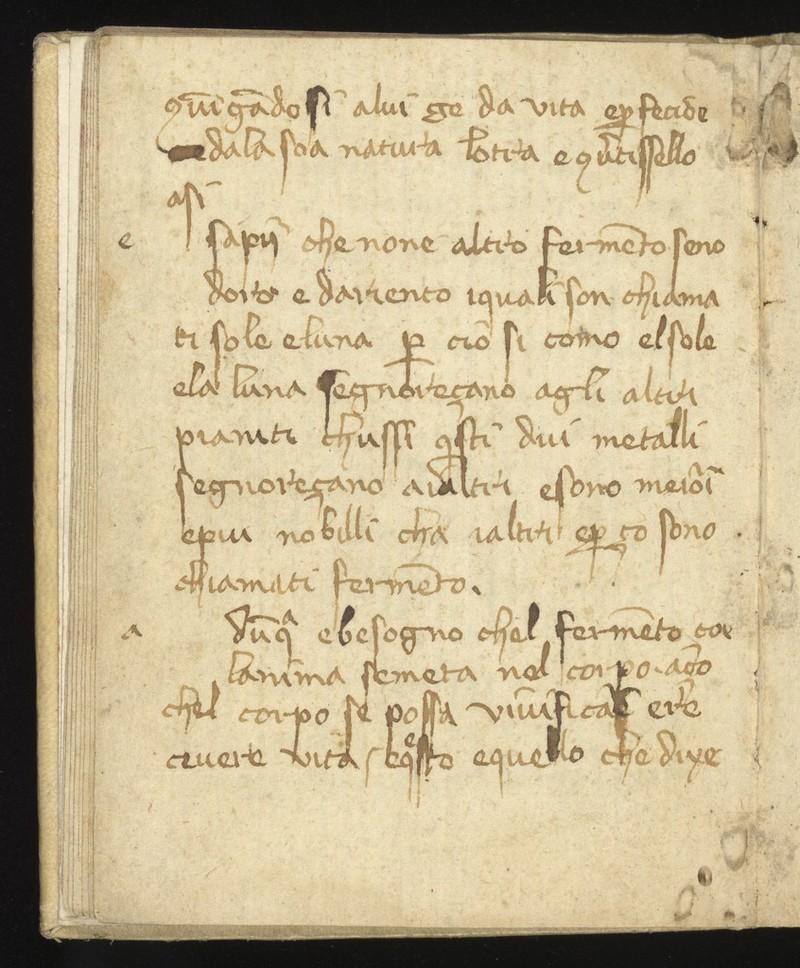 si alui ge da vita
dala soa natura e
asi
e sapij che none altro ferm̄eto seno
doro e dariento iquali son chiama
ti sole eluna ꝑ ciō si como elsole
ela luna segnoreçano agli altri
pianiti chussi qͥsti dui metalli
segnoreçano aialtri esono meiōi
epiu nobilli cha ialtri eꝑ ço sono
chiamati ferm̄eto.
a dūqᵃ ebesogno chel ferm̄eto coe
lanima semeta nel corpo açō
chel corpo se possa
ceuere vita / eqͤsto equello che dixe